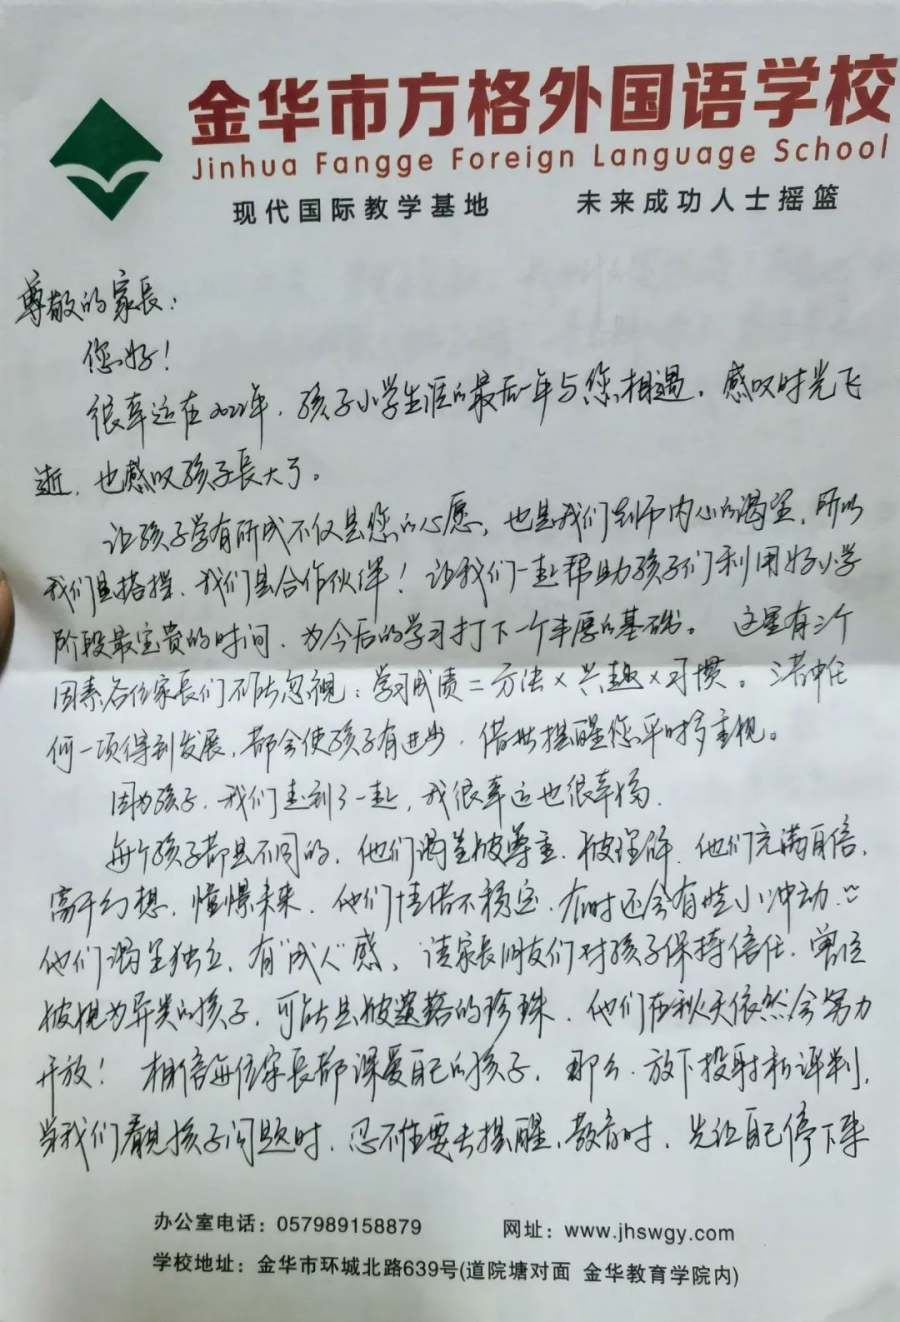 金华市方格外国语学校
Jinhua Fangge Foreign Language School
现代国际教学基地 未来成功人士摇篮
尊敬的家长：
您好！
很幸运在2022年，孩子小学生涯的最后一年与您相遇。感叹时光飞
逝，也感叹孩子长大了。
让孩子学有所成不仅是您的心愿，也是我们老师内心的渴望，所以
我们是搭挡，我们是合作伙伴！让我们一起帮助孩子们利用好小学
阶段最宝贵的时间，为今后的学习打下一个丰厚的基础。这里有三个
因素各位家长们不能忽视：学习成绩=方法×兴趣×习惯。三者中任
何一项得到发展，都会使孩子有进步，借此提醒您平时多重视。
因为孩子，我们走到了一起，我很幸运也很幸福。
每个孩子都是不同的，他们渴望被尊重、被理解，他们充满自信，
富于幻想，憧憬未来，他们情绪不稳定，有时还会有些小冲动
他们渴望独立，有“成人”感，请家长朋友们对孩子保持信任，曾经
被视为异类的孩子，可能是被遗落的珍珠，他们在秋天依然会努力
开放！相信每位家长都深爱自己的孩子，那么，放下投射和评判，
当我们看见孩子问题时，忍不住要去提醒、教育时，先让自己停下来
办公室电话：057989158879 网址：www.jhswgy.com
学校地址：金华市环城北路639号(道院塘对面 金华教育学院内)